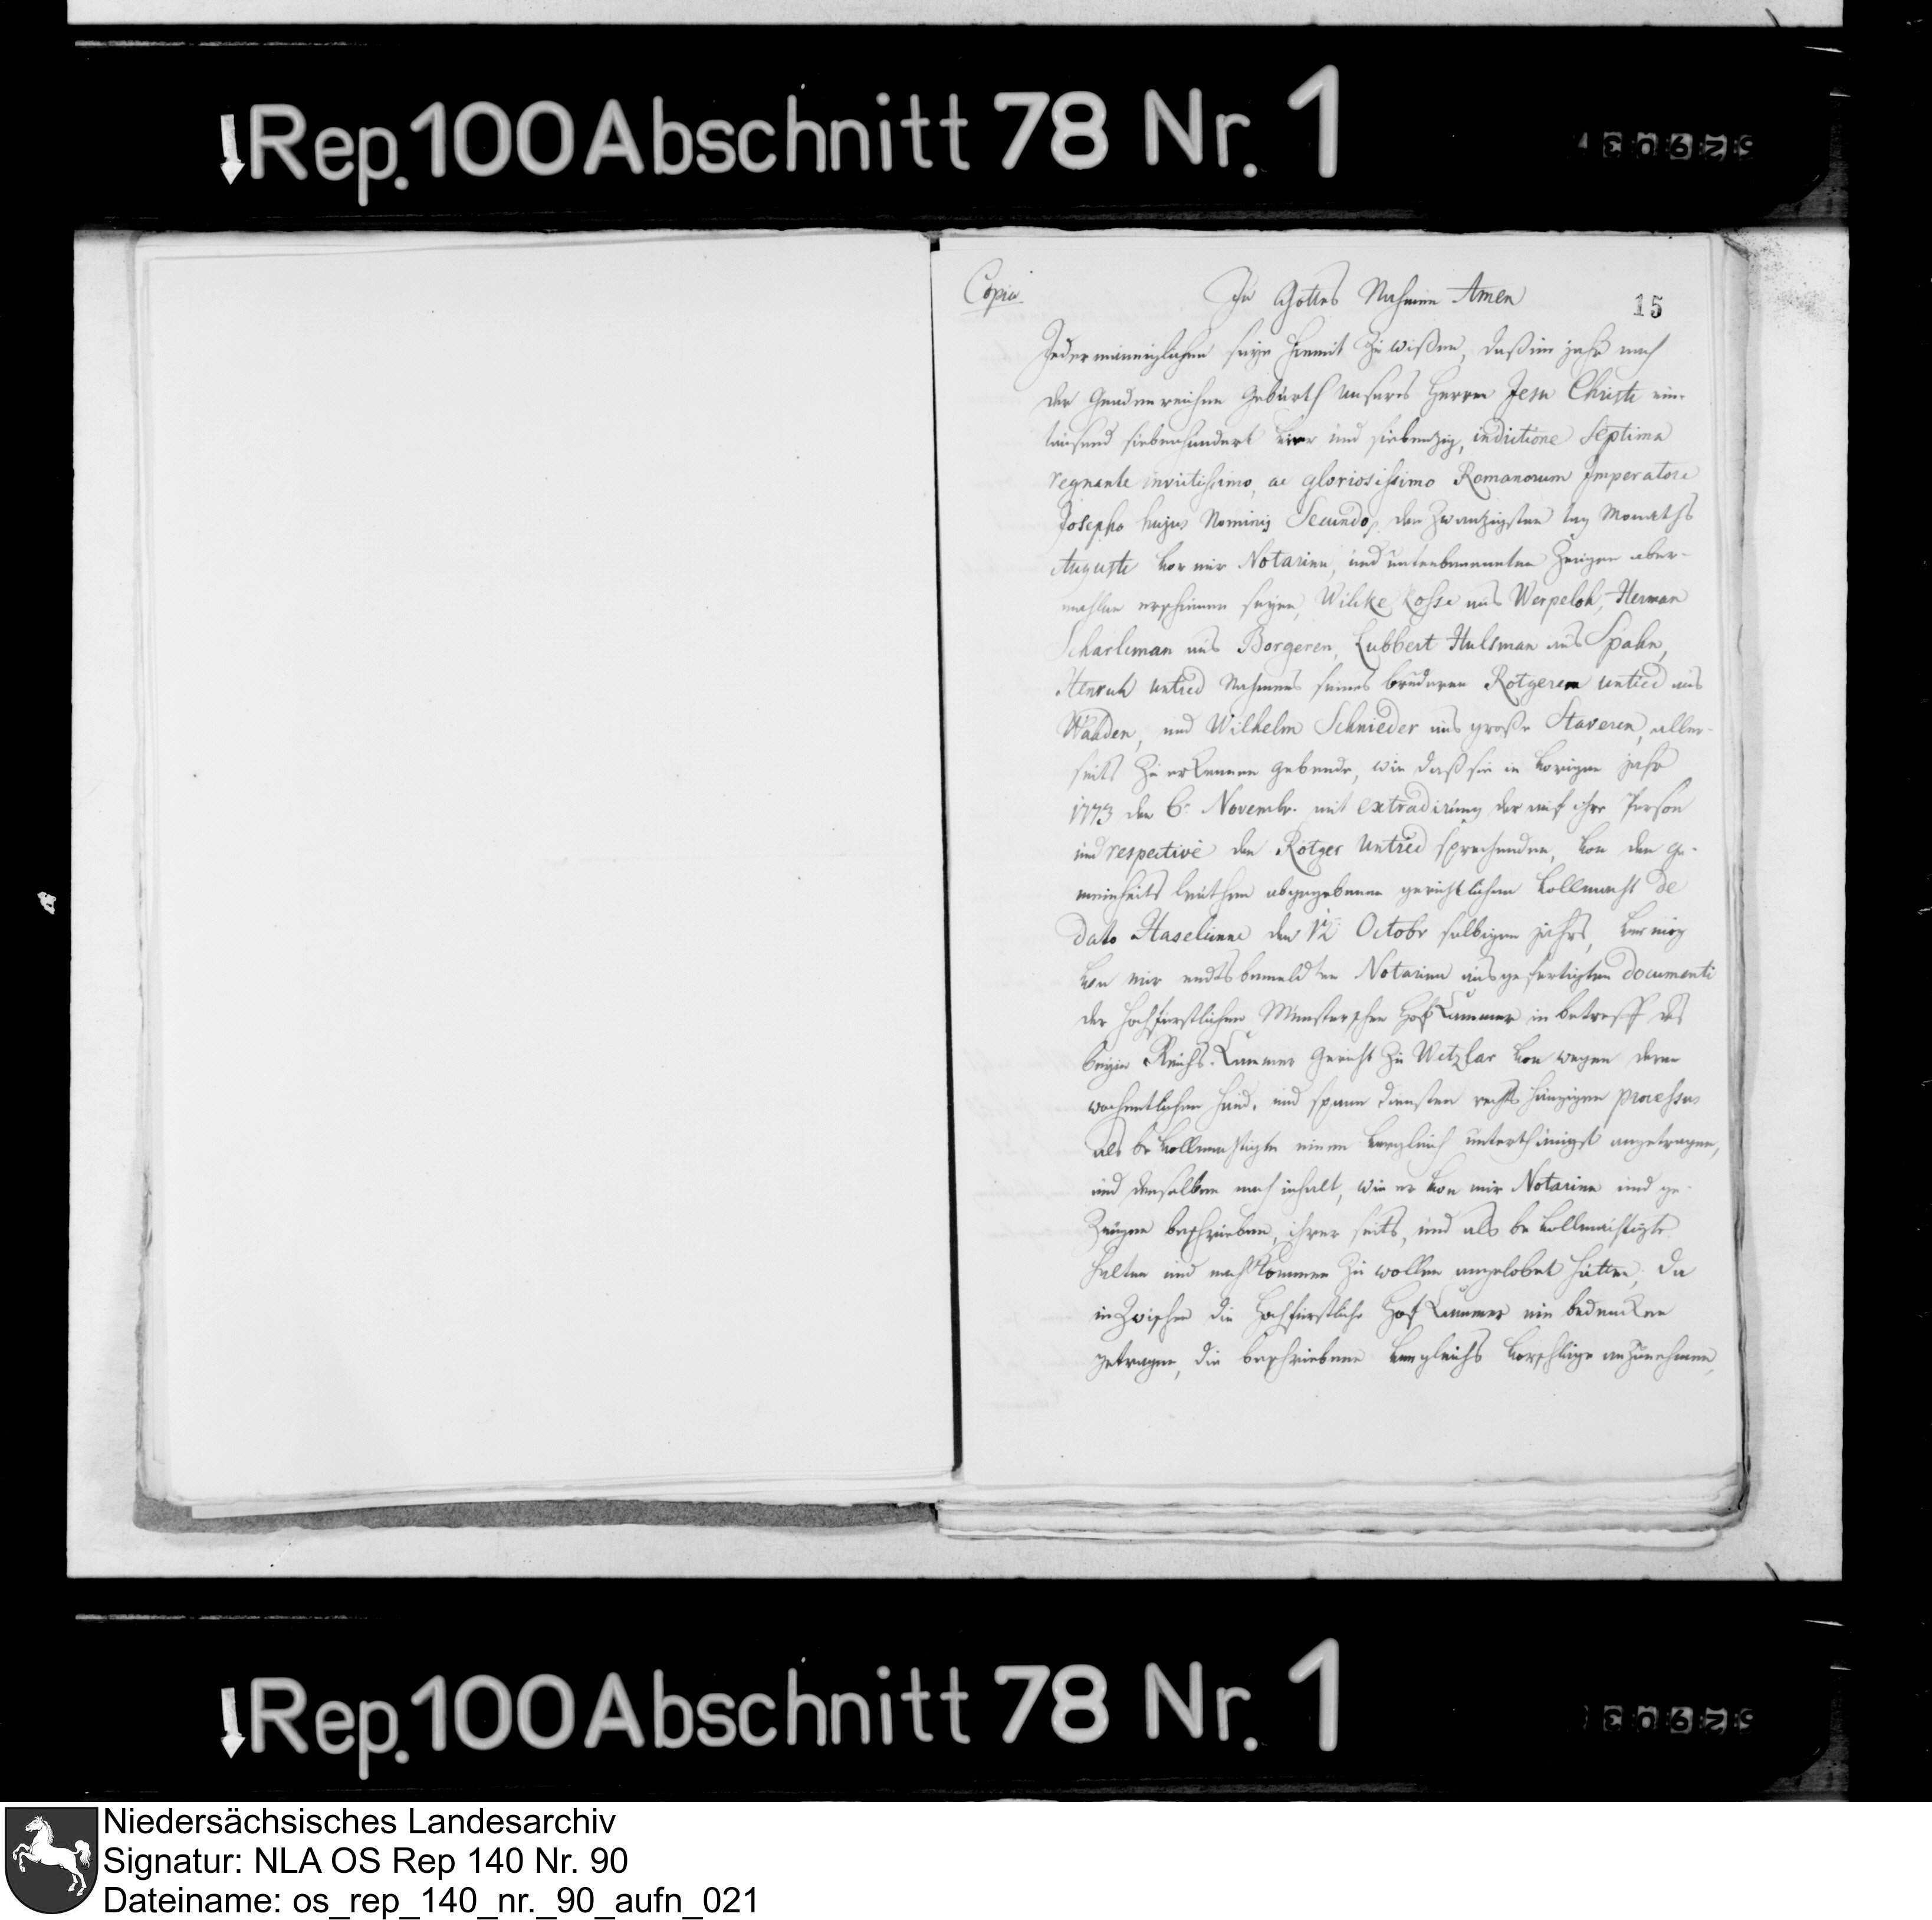 Rep. 100 Abschnitt 78 Nr. 1
Copia
In Gottes Nahmen Amen
15
Jedermänniglichen seye hiemit zu wißen, daß im jahr nach
der Gnadenreichen Geburth unseres Herren Jesu Christi ein-
tausend siebenhundert vier und siebenzig, indictione Septima
regnante invictissimo, ac gloriosissimo Romanorum Imperatore
Josepho hujus Nominis Secundo, den zwanzigsten tag Monaths
Augusti vor mir Notarien, und untenbenennten Zeugen aber-
mahlen erschienen seyen, Wilcke Kosse aus Werpeloh, Herman
Scharleman aus Borgeren, Lubbert Hulsman aus Spahn,
Henrich Untied Nahmens seines bruderen Rotgeren Untied aus
Wahden, und Wilhelm Schnieder aus große Staveren, aller-
seits zu erkennen gebende, wie daß sie in vorigen jahr
1773 den 6. Novembr. mit extradirung der auf ihre Person
und respective den Rotger Untied sprechenden, von den ge-
meinheits leuthen abgegebenen gerichtlichen Vollmacht de
dato Haselünne den 12 Octobr selbigen jahrs, vermög
von mir endts bemeldten Notarien ausgefertigten documenti
der Hochfürstlichen Münsterschen Hof Kammer in betreff des
beym Reichs-Kammer Gericht zu Wetzlar von wegen deren
wochentlichen Hand- und spann diensten rechts hängigen processus
als bevollmächtigte einen Vergleich unterthänigst angetragen,
und denselben nach inhalt, wie er von mir Notarien und ge-
Zeugen beschrieben, ihrer seits, und als bevollmächtigte
halten und nachkommen zu wollen angelobet hätten, da
inzwischen die Hochfürstliche Hof Kammer ein bedencken
getragen, die beschriebene Vergleichs Vorschläge anzunehmen,
Rep. 100 Abschnitt 78 Nr. 1
Niedersächsisches Landesarchiv
Signatur: NLA OS Rep 140 Nr. 90
Dateiname: os_rep_140_nr._90_aufn_021